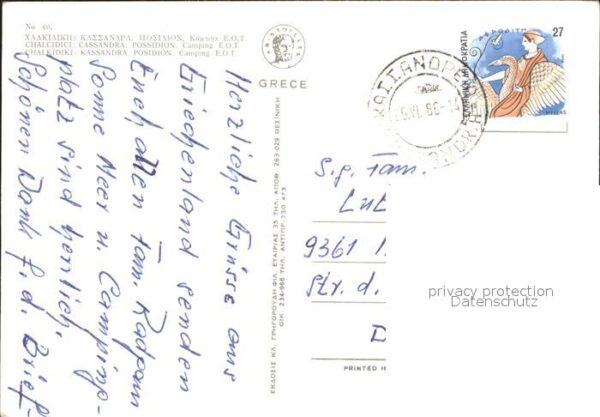 No 60.
ΧΑΛΚΙΔΙΚΗ: ΚΑΣΣΑΝΔΡΑ. ΠΟΣΙΔΙΟΝ, Κάμπιγκ Ε.Ο.Τ.
CHALCIDICI: CASSANDRA. POSSIDION. Camping E.O.T.
CHALKIDIKI: KASSANDRA. POSSIDION. Camping E.O.T.
GRECE
Herzliche Grüsse aus
Griechenland senden
Euch allen Fam.
Sonne Meer u. Camping-
platz sind herrlich.
Schönen Dank f. d. Brief
ΕΚΔΟΣΙΣ ΚΛ. ΓΡΗΓΟΡΟΥΔΗ ΦΙΛ. ΕΤΑΙΡΙΑΣ 35 ΤΗΛ. ΑΠΟΘ. 263-029 ΘΕΣ/ΝΙΚΗ
ΟΙΚ. 234-966 ΤΗΛ. ΑΝΤΙΠΡ. 730 473
27
ΑΦΡΟΔΙΤΗ
ΕΛΛΗΝΙΚΗ ΔΗΜΟΚΡΑΤΙΑ
HELLAS
S.g. Fam.
9361
Str. d.
D
PRINTED
privacy protection
Datenschutz